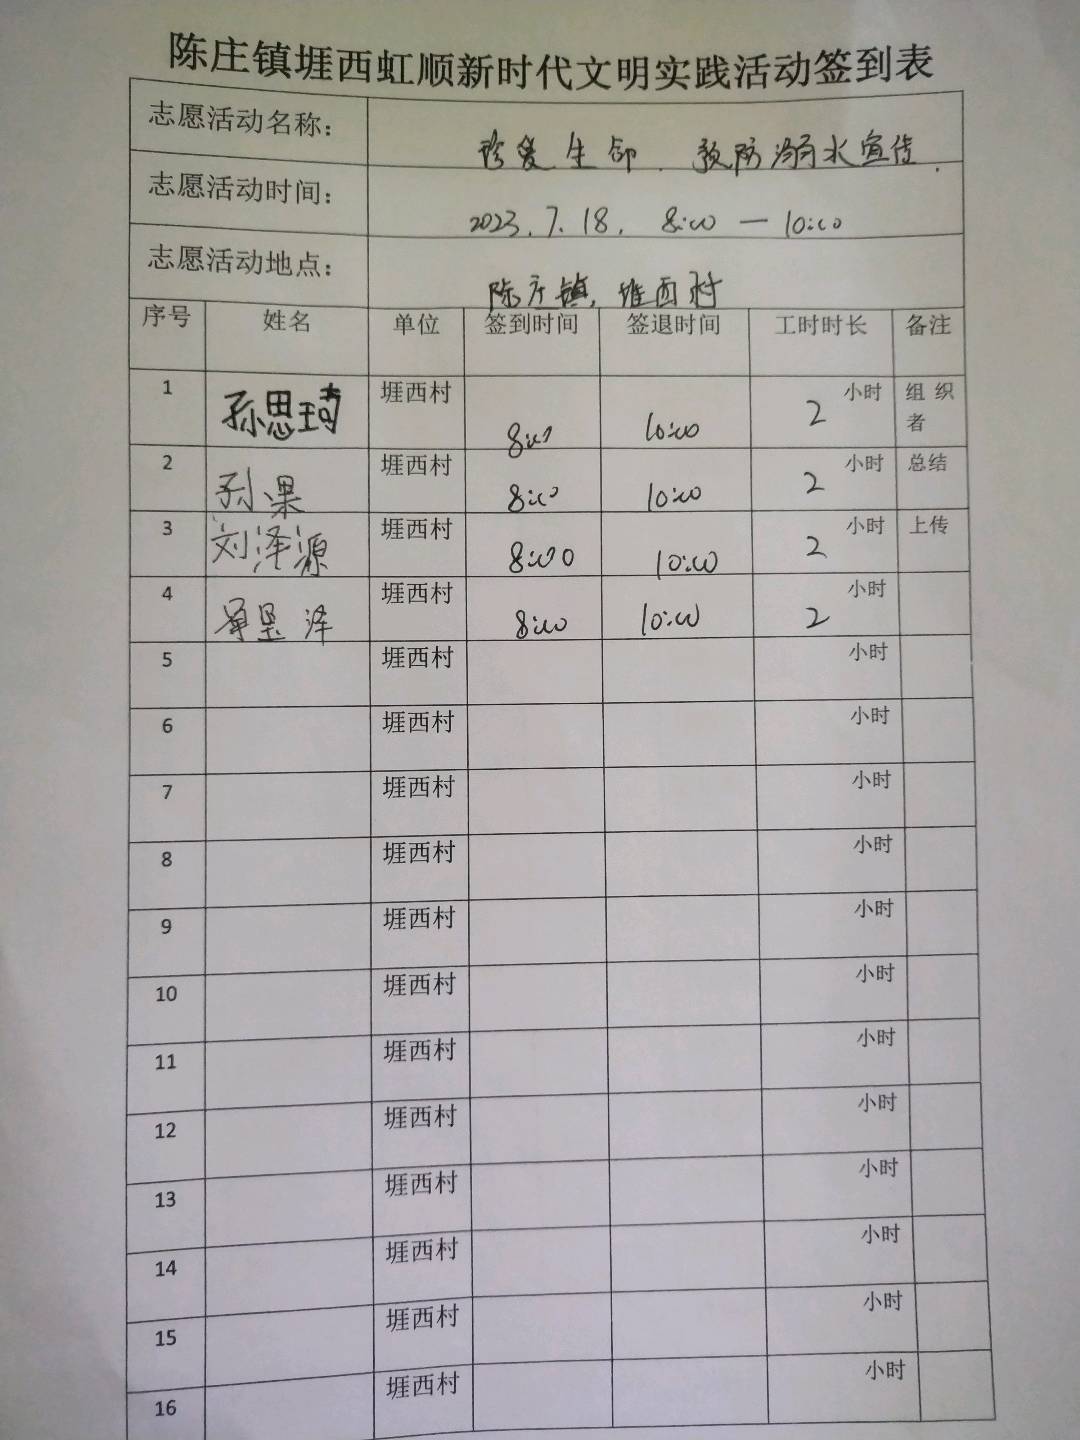 陈庄镇堐西虹顺新时代文明实践活动签到表
志愿活动名称： 珍爱生命. 预防溺水宣传.
志愿活动时间： 2023.7.18. 8:00 — 10:00
志愿活动地点： 陈庄镇, 堐西村
序号 姓名 单位 签到时间 签退时间 工时时长 备注
1 孙思琦 堐西村 8:00 10:00 2 小时 组织
者
2 孙果 堐西村 8:00 10:00 2 小时 总结
3 刘泽源 堐西村 8:00 10:00 2 小时 上传
4 堐西村 8:00 10:00 2 小时
5 堐西村 小时
6 堐西村 小时
7 堐西村 小时
8 堐西村 小时
9 堐西村 小时
10 堐西村 小时
11 堐西村 小时
12 堐西村 小时
13 堐西村 小时
14 堐西村 小时
15 堐西村 小时
16 堐西村 小时